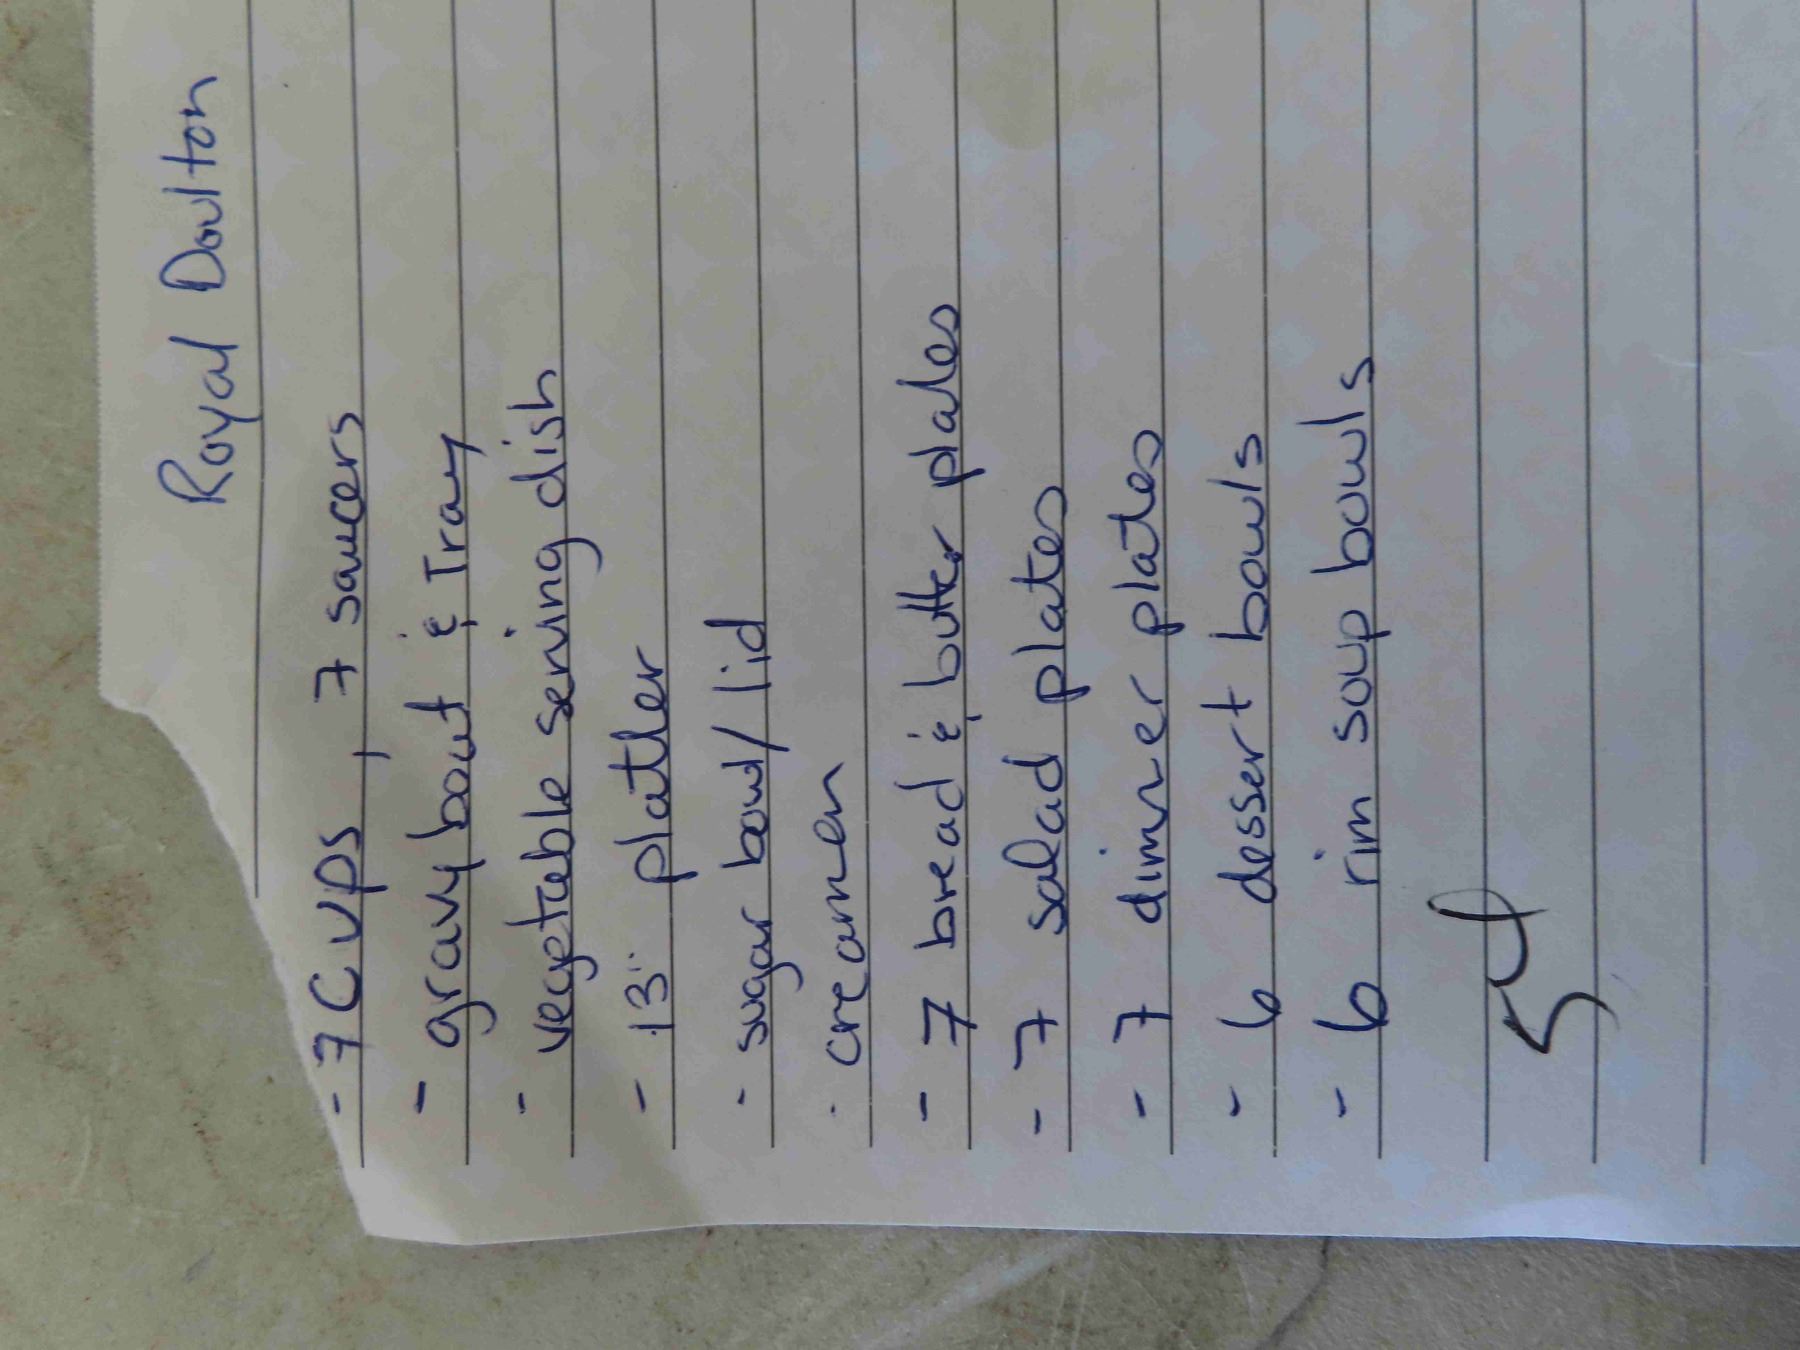 Royal Doulton
- 7 cups, 7 saucers
- gravy boat & Tray
- vegetable serving dish
- 13" platter
- sugar bowl/lid
- creamer
- 7 bread & butter plates
- 7 salad plates
- 7 dinner plates
- 6 dessert bowls
- 6 rim soup bowls
54